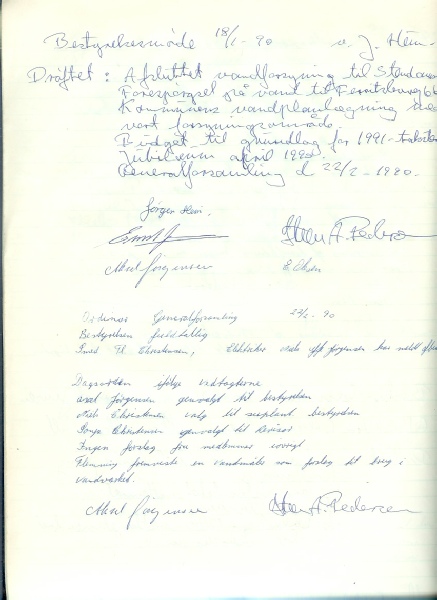 Bestyrelsesmøde 18/1-90 v. J. Hein
Drøftet: Afsluttet vandforsyning til
Forespørgsel på vand til
Kommunens vandplanlægning
vort forsyningsområde.
Budget til grundlag for 1991-taksten
Jubilæum april 1990.
Generalforsamling d. 22/2-1990.
Jørgen Hein.
A. Pedersen
Aksel Jørgensen E. Olsen
Ordinær Generalforsamling 22/2-90
Bestyrelsen fuldtallig
Christensen, Elektriker har meldt
Dagsorden ifølge vedtægterne
Aksel Jørgensen genvalgt til bestyrelsen
Niels Christensen valg til suppleant bestyrelsen
Sonja Christensen genvalgt til revisor
Ingen forslag fra medlemmer
Flemming fremviste en vandmåler som forslag til brug i
vandværket.
Aksel Jørgensen A. Pedersen